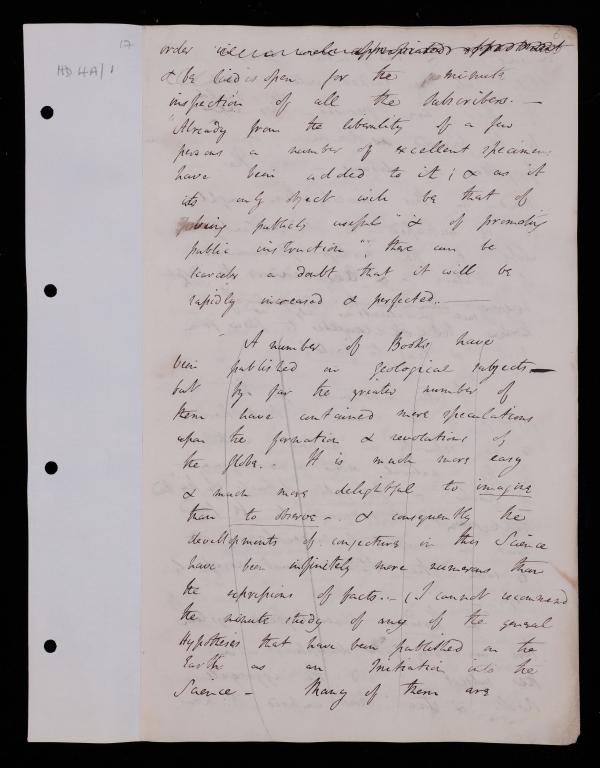 17
HD 4A/1
6
order
& be lied is open for the minute
inspection of all the Subscribers. —
"Already from the liberality of a few
persons a number of excellent specimens
have been added to it; & as it
its only object will be that of
being publicly useful" & of promoting
public instruction"; there can be
scarcely a doubt that it will be
rapidly increased & perfected. —
A number of Books have
been published on geological subjects —
but by far the greater number of
them have contained mere speculations
upon the formation & revolutions of
the globe. . It is much more easy
& much more delightful to imagine
than to observe — . & consequently the
developments of conjecture in this Science
have been infinitely more numerous than
the expressions of facts. — (I cannot recommend
the minute study of any of the general
Hypotheses that have been published on the
Earth as an Initiation into the
Science — Many of them are